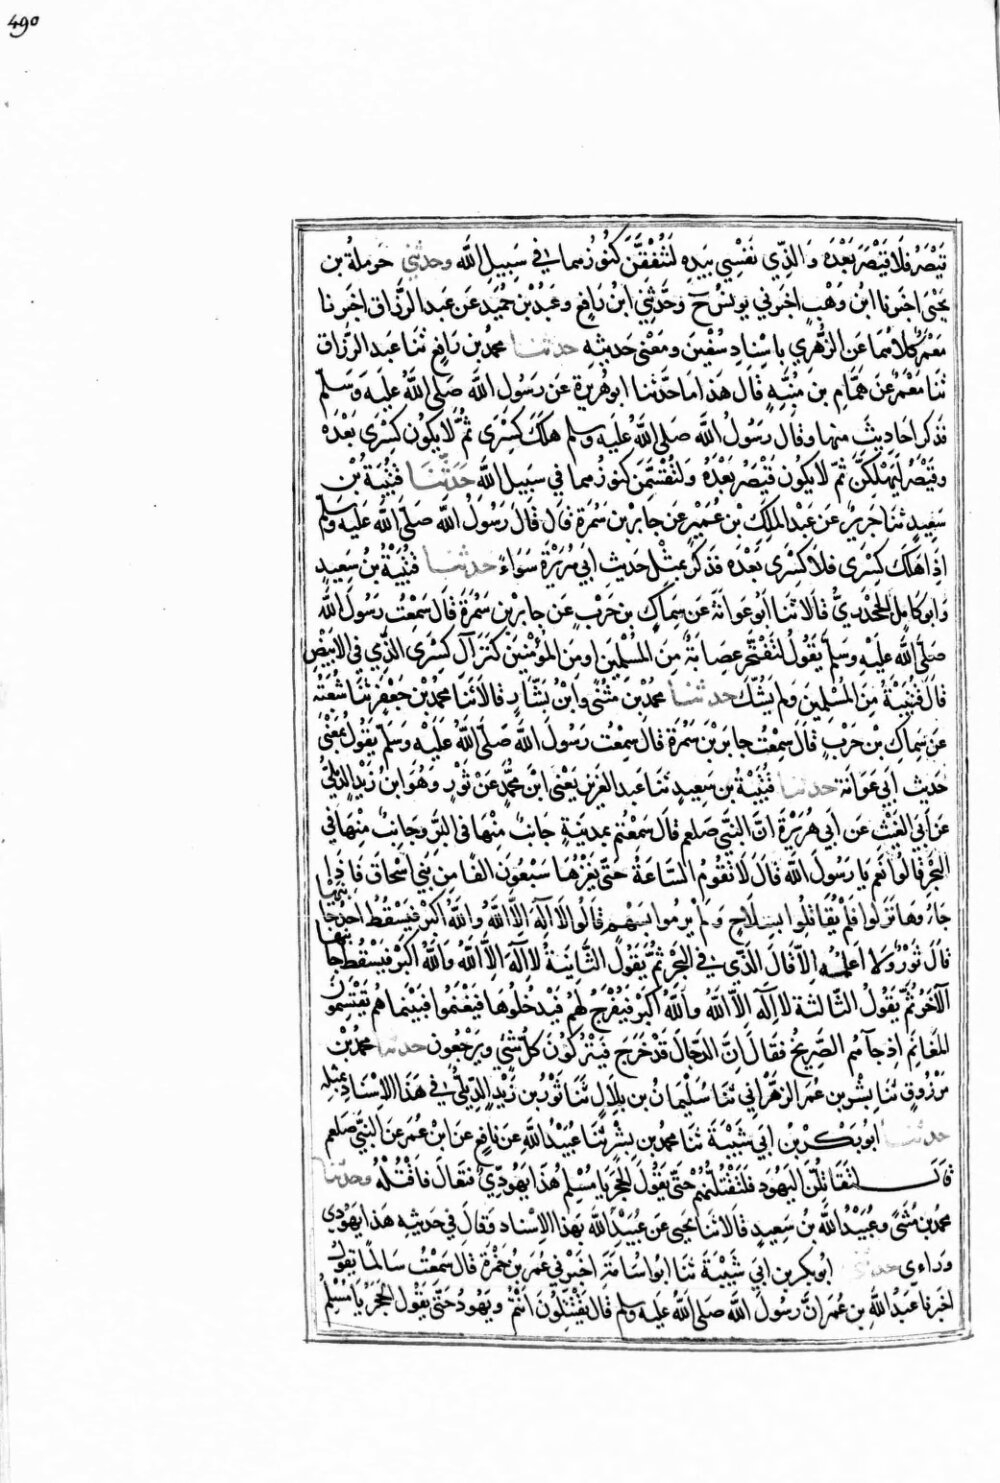 490
قَيْصَرُ فَلَا قَيْصَرَ بَعْدَهُ وَالَّذِي نَفْسِي بِيَدِهِ لَتُنْفَقَنَّ كُنُوزُهما فِي سَبِيلِ اللَّه وحدثني حرملة بن
يَحْيَى اخبرنا ابن وَهْبٍ اخبرني يونس ح وَحَدَّثَنِي ابن رَافِعٍ وعَبْدُ بن حُمَيْدٍ عن عبد الرزاق اخبرنا
مَعْمَرٌ كِلَاهُمَا عَنِ الزُّهْرِي بِاسْنَادِ سُفْيَنَ وَمَعْنَى حَدِيثِهِ حدثنا محمد بن رَافِعٍ ثنا عبد الرَّزَّاق
ثَنَا مَعْمَرٌ عَنْ هَمَّامِ بن مُنَبِّهٍ قَالَ هَذَا مَا حَدَّثَنَا ابو هُرَيْرَة عَنْ رَسُول اللَّه صَلَّى اللَّهُ عَلَيْهِ وَسَلَّم
فَذَكَرَ احَادِيثَ مِنْهَا وَقَالَ رَسُولُ اللَّه صَلَى اللَّهُ عَلَيْهِ وسلم هَلَكَ كِسْرَى ثُمَّ لَا يَكُون كِسْرَى بَعْدَهُ
وقَيْصَرُ لَيَهْلِكَنَّ ثُمّ لا يَكُونُ قَيْصَرُ بَعْدَهُ وَلَتُقْسَمَنَّ كُنُوزُهما فِي سَبِيلِ اللَّه حَدَّثَنَا قُتَيْبَةُ بْن
سَعِيدٍ ثنَا جَرِيرٌ عَن عَبْدِ المَلِكِ بْن عُمَيْرٍ عن جابر بْن سَمُرَةَ قال قَالَ رَسُولُ اللَّه صَلَّى اللَّه عَلَيْهِ وَسَلَّم
اذَا هَلَكَ كِسْرَى فلا كِسْرَى بَعْدَهُ فَذَكَرَ بِمثْلِ حَدِيثِ ابِي هُرَيْرَةَ سَوَاءً حدثنا قُتَيْبَةُ بنُ سَعِيدٍ
وَابو كَامِلٍ الجَحْدَرِيُّ قَالَا ثَنَا ابُو عَوَانَةَ عَنْ سِمَاكِ بن حَرْبٍ عن جابر بن سَمُرَةَ قَالَ سَمِعْتُ رَسُولَ اللَّه
صَلَّى اللَّه عَلَيْهِ وَسَلَّم يَقُولُ لَتَفْتَحَنَّ عِصَابَةٌ مِنَ المُسْلِمِينَ او مِنَ المُؤْمِنِينَ كَنْزَ آلِ كِسْرَى الَّذِي فِي الابْيَضِ
قَالَ قُتَيْبَةُ مِنَ المُسْلِمِينَ وَلَم يَشُكَّ حدثنا محمد بْن مُثَنَّى وَابْنُ بَشَّارٍ قَالَا ثَنَا محمد بْن جَعْفَر ثنَا شُعْبَة
عَن سِمَاكِ بْن حَرْبٍ قَالَ سَمِعْتُ جابِرَ بْنَ سَمُرَةَ قَالَ سمِعْت رَسُولَ اللَّه صَلَّى اللَّهُ عَلَيْهِ وسلَّم يَقُولُ بمَعْنَى
حَدِيث ابِي عَوَانَةَ حدثنا قُتَيْبَةُ بن سَعِيدٍ ثنَا عَبد العزيز يَعْنِى ابْنَ مُحَمَّدٍ عَنْ ثَوْرٍ وَهُوَ ابنُ زَيْدٍ الدِّيلِيُّ
عَن أَبِي الغَيْثِ عَن أَبِي هُرَيْرَةَ انَّ النَّبِيَّ صلعم قَالَ سَمِعْتُم بمَدينَةٍ جَانِبٌ مِنْهَا فِي البَرِّ وَجَانِبٌ مِنْهَا فِي
البَحْرِ قَالُوا نَعَم يَا رَسُولَ اللَّه قَالَ لَا تَقُومُ السَّاعَةُ حَتَّى يَغْزُهَا سَبْعُونَ الفًا مِن بَنِي اسْحَاقَ فَاذَا
جَاؤُهَا نَزَلُوا فَلَمْ يُقَاتِلُوا بِسِلَاحٍ وَلَمْ يَرْمُوا بِسَهْم قَالُوا لَا الَهَ الَّا اللَّه وَاللَّه أَكْبَرُ فَيَسْقُطُ احَدُ جَانِبَيْهَا
قَالَ ثَوْرٌ وَلا اعْلَمُه الَّا قَالَ الَّذِي فِي البَحْرِ ثُمَّ يَقُولُ الثَّانِيَةَ لَا الَهَ الَّا اللَّه وَاللَّهُ اكبَرُ فَيَسْقُطُ جَانِبُهَا
الآخَرُ ثُمَّ يَقُولُ الثَّالِثَة لا الَه الَّا اللَّه وَاللَّهُ اكْبَرُ فَيُفْرَجُ لَهُمْ فَيَدْخُلُوهَا فَيَغْنَمُوا فَبَيْنَما هُمْ يَقْتَسِمُونَ
المَغَانِمَ اذ جآءهم الصَّرِيخُ فَقَالَ انَّ الدَّجَّالَ قَدْ خَرَجَ فَيَتْرُكُونَ كُلَّ شَيْءٍ وَيَرْجِعُونَ حدثنا محمد بن
مَرْزُوقٍ ثنَا بِشْرُ بن عُمَرَ الزَّهْرَانِي ثنَا سُلَيْمَانُ بن بِلَالٍ ثنَا ثَوْرُ بن زَيْدٍ الدِّيلِيُّ فِي هَذَا الاسْنَادِ بمِثْلِهِ
حدثنا ابُو بَكْر بْن ابِي شَيْبَةَ ثنا محمد بن بِشْرٍ ثنَا عُبَيْدُ اللَّه عَن نَافِعٍ عَن ابن عُمَرَ عَن النَّبِيِّ صلعم
قال لَتُقَاتِلُنَّ اليَهُودَ فَلَتَقْتُلُنَّهُم حَتَّى يَقُولَ الحَجَرُ يَا مُسْلِمُ هَذَا يَهُودِيٌّ فَتَعَالَ فَاقْتُلْهُ وحدثنا
محمد بن مُثَنَّى وعُبَيْدُ اللَّه بنُ سَعِيدٍ قَالَا ثنَا يَحْيى عَن عُبَيْدِ اللَّه بِهَذَا الاسْنَادِ وَقَالَ فِي حَدِيثِهِ هَذَا يَهُودِي
وَرَاءي حدثنا ابُو بكر بن ابِي شَيْبَةَ ثنَا ابُو اسَامَةَ اخبَرَنِي عُمَرُ بْنُ حَمْزَةَ قَالَ سَمِعْتُ سَالمًا يَقُول
اخبرنا عَبْدُ اللَّهِ بن عُمَر انَّ رَسُولَ اللَّه صَلَّى اللَّهُ عَلَيْهِ وسلم قَالَ تَقْتَتِلُونَ انْتُمْ وَيَهُودُ حَتَّى يَقُولَ الحَجَرُ يَا مُسْلِمُ